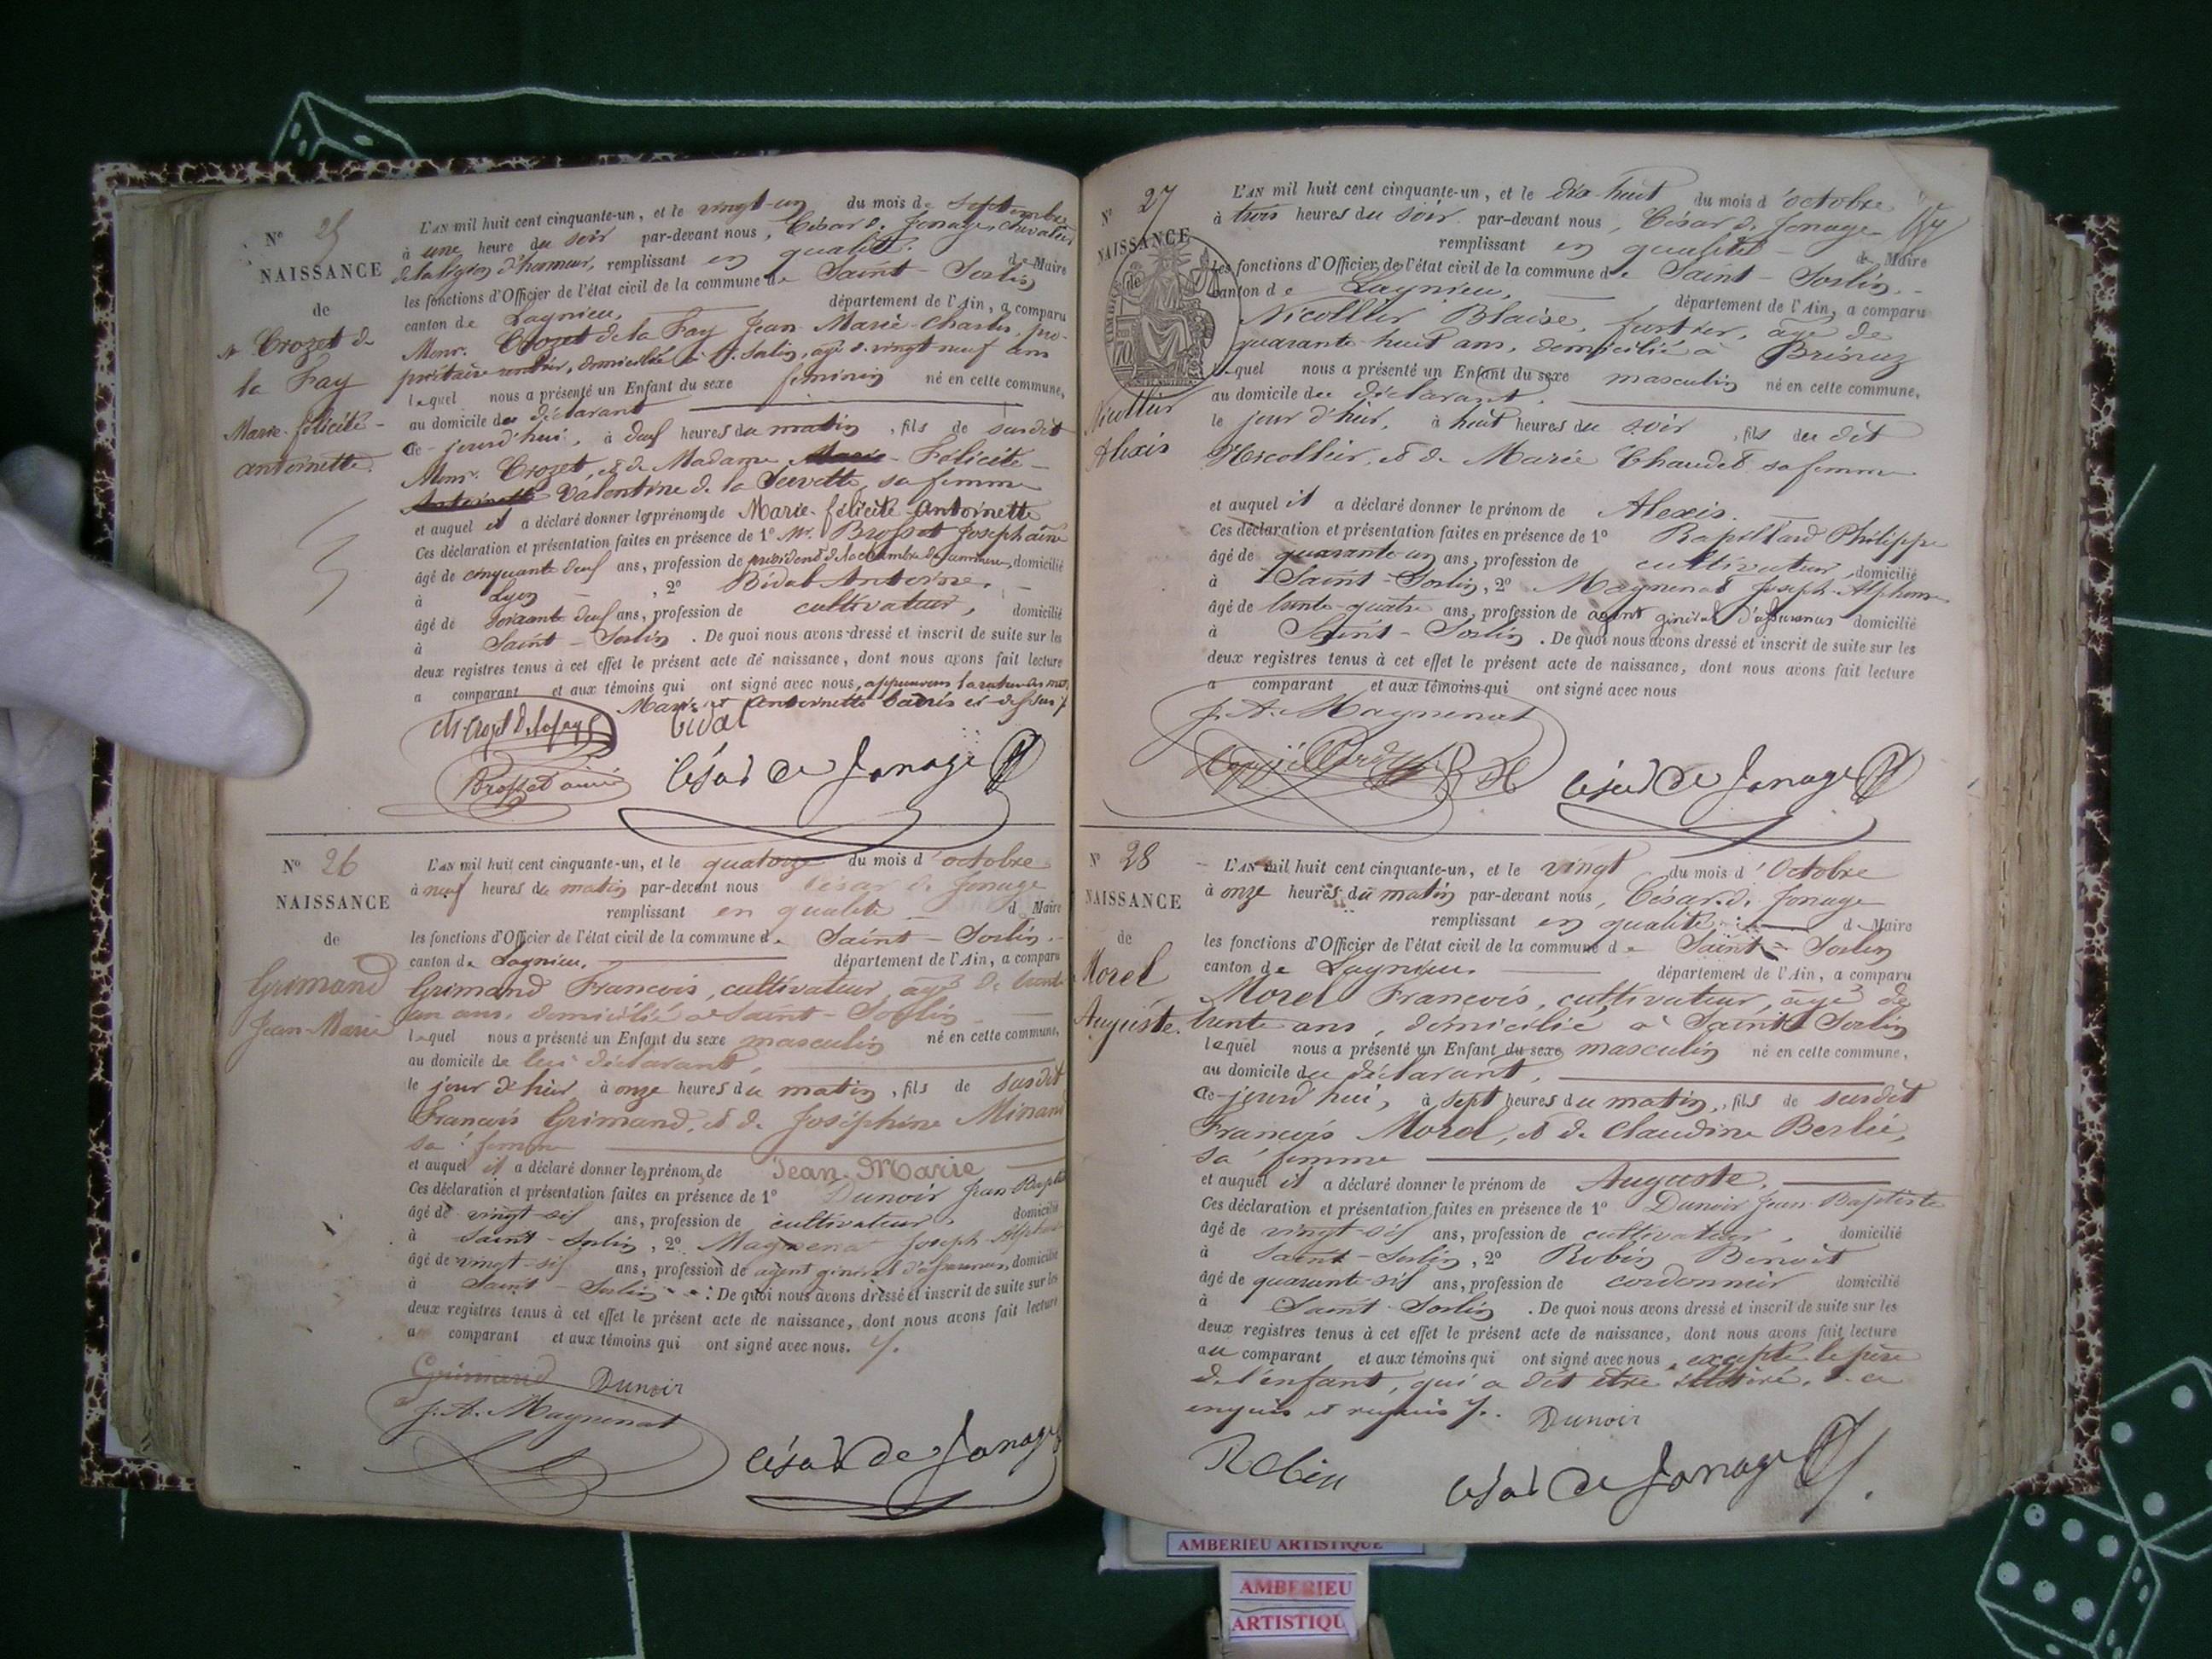 Nº 25
NAISSANCE
de
Crozet de
la Fay
Marie-félicité-
antoinette.
L'AN mil huit cent cinquante-un, et le vingt-un du mois de Septembre
à une heure du soir par-devant nous, César de Jonage, chevalier
de la légion d'honneur, remplissant en qualité de Maire
les fonctions d'Officier de l'état civil de la commune de Saint-Sorlin
canton de Lagnieu, département de l'Ain, a comparu
Monr. Crozet de la Fay Jean-Marie-Charles, pro-
priétaire rentier, domicilié à St. Sorlin, âgé de vingt-neuf ans
lequel nous a présenté un Enfant du sexe féminin né en cette commune,
au domicile du déclarant
ce-jourd'hui, à deux heures du matin, fils de susdit
Monr. Crozet, et de Madame Marie-Félicité-
Antoinette Valentine de la sa femme
et auquel il a déclaré donner les prénoms de Marie-félicité-Antoinette
Ces déclaration et présentation faites en présence de 1º Mr. Brosset Joseph aîné
âgé de cinquante deux ans, profession de président de la chambre de commerce, domicilié
à Lyon, 2º Bidal Antoine,
âgé de soixante deux ans, profession de cultivateur, domicilié
à Saint-Sorlin. De quoi nous avons dressé et inscrit de suite sur les
deux registres tenus à cet effet le présent acte de naissance, dont nous avons fait lecture
a comparant et aux témoins qui ont signé avec nous, approuvons la rature des mots
Marie et Antoinette ci-dessus
Ch. Crozet de la Fay Bidal
Brosset aîné César de Jonage
Nº 26
NAISSANCE
de
Grimand
Jean-Marie
L'AN mil huit cent cinquante-un, et le quatorze du mois d'octobre
à neuf heures du matin par-devant nous César de Jonage
remplissant en qualité d Maire
les fonctions d'Officier de l'état civil de la commune de Saint-Sorlin
canton de Lagnieu, département de l'Ain, a comparu
Grimand François, cultivateur, âgé de trente
un ans, domicilié à Saint-Sorlin
lequel nous a présenté un Enfant du sexe masculin né en cette commune,
au domicile de lui déclarant,
le jour d'hier, à onze heures du matin, fils de susdit
François Grimand, et de Joséphine Minand
sa femme
et auquel il a déclaré donner les prénoms de Jean-Marie
Ces déclaration et présentation faites en présence de 1º Dunoir Jean-Baptiste
âgé de vingt-six ans, profession de cultivateur, domicilié
à Saint-Sorlin, 2º Magnenat Joseph-Alphonse
âgé de vingt-six ans, profession de agent général d'assurances, domicilié
à Saint-Sorlin. De quoi nous avons dressé et inscrit de suite sur les
deux registres tenus à cet effet le présent acte de naissance, dont nous avons fait lecture
a comparant et aux témoins qui ont signé avec nous.
Grimand Dunoir
J. A. Magnenat
César de Jonage
Nº 27
NAISSANCE
de
Nicollier
Alexis
L'AN mil huit cent cinquante-un, et le dix-huit du mois d'octobre
à trois heures du soir par-devant nous, César de Jonage
remplissant en qualité de Maire
les fonctions d'Officier de l'état civil de la commune de Saint-Sorlin
canton de Lagnieu, département de l'Ain, a comparu
Nicollier Blaise, âgé de
quarante-huit ans, domicilié à
lequel nous a présenté un Enfant du sexe masculin né en cette commune,
au domicile du déclarant,
le jour d'hier, à huit heures du soir, fils du dit
Nicollier, et de Marie Chaudet sa femme
et auquel il a déclaré donner le prénom de Alexis.
Ces déclaration et présentation faites en présence de 1º Rapillard Philippe
âgé de quarante-un ans, profession de cultivateur, domicilié
à Saint-Sorlin, 2º Magnenat Joseph-Alphonse
âgé de trente-quatre ans, profession de agent général d'assurances domicilié
à Saint-Sorlin. De quoi nous avons dressé et inscrit de suite sur les
deux registres tenus à cet effet le présent acte de naissance, dont nous avons fait lecture
a comparant et aux témoins qui ont signé avec nous
J. A. Magnenat
César de Jonage
Nº 28
NAISSANCE
de
Morel
Auguste.
L'AN mil huit cent cinquante-un, et le vingt du mois d'Octobre
à onze heures du matin par-devant nous, César de Jonage
remplissant en qualité de Maire
les fonctions d'Officier de l'état civil de la commune de Saint-Sorlin
canton de Lagnieu. département de l'Ain, a comparu
Morel François, cultivateur, âgé de
trente ans, domicilié à Saint-Sorlin
lequel nous a présenté un Enfant du sexe masculin né en cette commune,
au domicile du déclarant,
ce-jourd'hui, à sept heures du matin, fils de susdit
François Morel, et de Claudine Berlié,
sa femme
et auquel il a déclaré donner le prénom de Auguste.
Ces déclaration et présentation faites en présence de 1º Dunoir Jean-Baptiste
âgé de vingt-six ans, profession de cultivateur, domicilié
à Saint-Sorlin, 2º Robin Benoit
âgé de quarante-six ans, profession de cordonnier domicilié
à Saint-Sorlin. De quoi nous avons dressé et inscrit de suite sur les
deux registres tenus à cet effet le présent acte de naissance, dont nous avons fait lecture
au comparant et aux témoins qui ont signé avec nous, excepté le père
de l'enfant, qui a dit être illétiré, de ce
enquis et requis. Dunoir
Robin César de Jonage
AMBERIEU ARTISTIQUE
AMBERIEU
ARTISTIQU